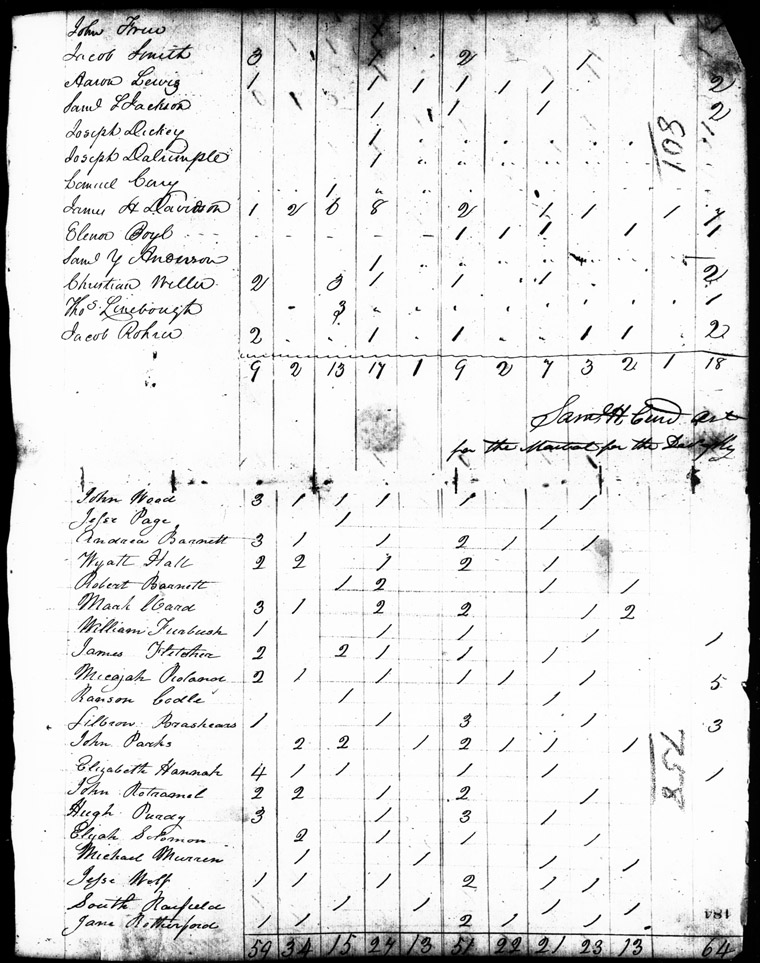 John
Jacob Smith 3 1 2 1
Aaron Lewis 1 1 1 1 1 1 2
Saml L Jackson 1 1 1 2
Joseph Dickey 1 1
Joseph Dalrumple 1
Samuel 1
James H Davidson 1 2 6 8 2 1 1 1 7
Elenor Boyl 1 1 1 1 1 1
Saml Y Anderson 1
Christian Weller 2 3 1 1 1 2
Thos Linebough 3 1
Jacob Rohrer 2 1 1 1 1 2
9 2 13 17 1 9 2 7 3 2 1 18
103
Saml H Curd
for the for the
John Wood 3 1 1 1 1 1
Jesse Page 1 1
Andrew Barnett 3 1 1 2 1 1
Wyatt Hall 2 2 1 2 1
Robert Barnett 1 2 1 1
Mark 3 1 2 2 1 2
William Furbush 1 1 1 1 1
James Fletcher 2 2 1 1 1
Micajah Roland 2 1 1 1 1 1 5
Ranson Codle 1 1
Brashears 1 1 3 1 3
John Parks 2 2 1 2 1 1 1
Elizabeth Hannah 4 1 1 1 1 1
John Rotramel 2 2 1 2 1
Hugh Purdy 3 1 3 1
Elijah Solomon 2 1 1 1
Michael Murren 1 1 1 1
Jesse Wolf 1 1 1 2 1 1
South 1 1 1 1
Jane Rotherford 1 1 2 1 1 1
858
184
59 34 15 27 13 51 22 21 23 13 64